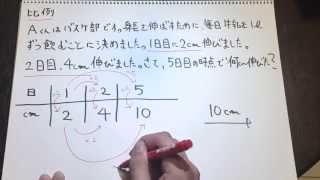 比例
Aくんはバスケ部です。身長を伸ばすために、毎日牛乳を1L
ずつ飲むことに決めました。1日目に2cm伸びました。
2日目、4cm伸びました。さて、5日目の時点で何cm伸びた?
日 1 2 5
cm 2 4 10
10cm
×2